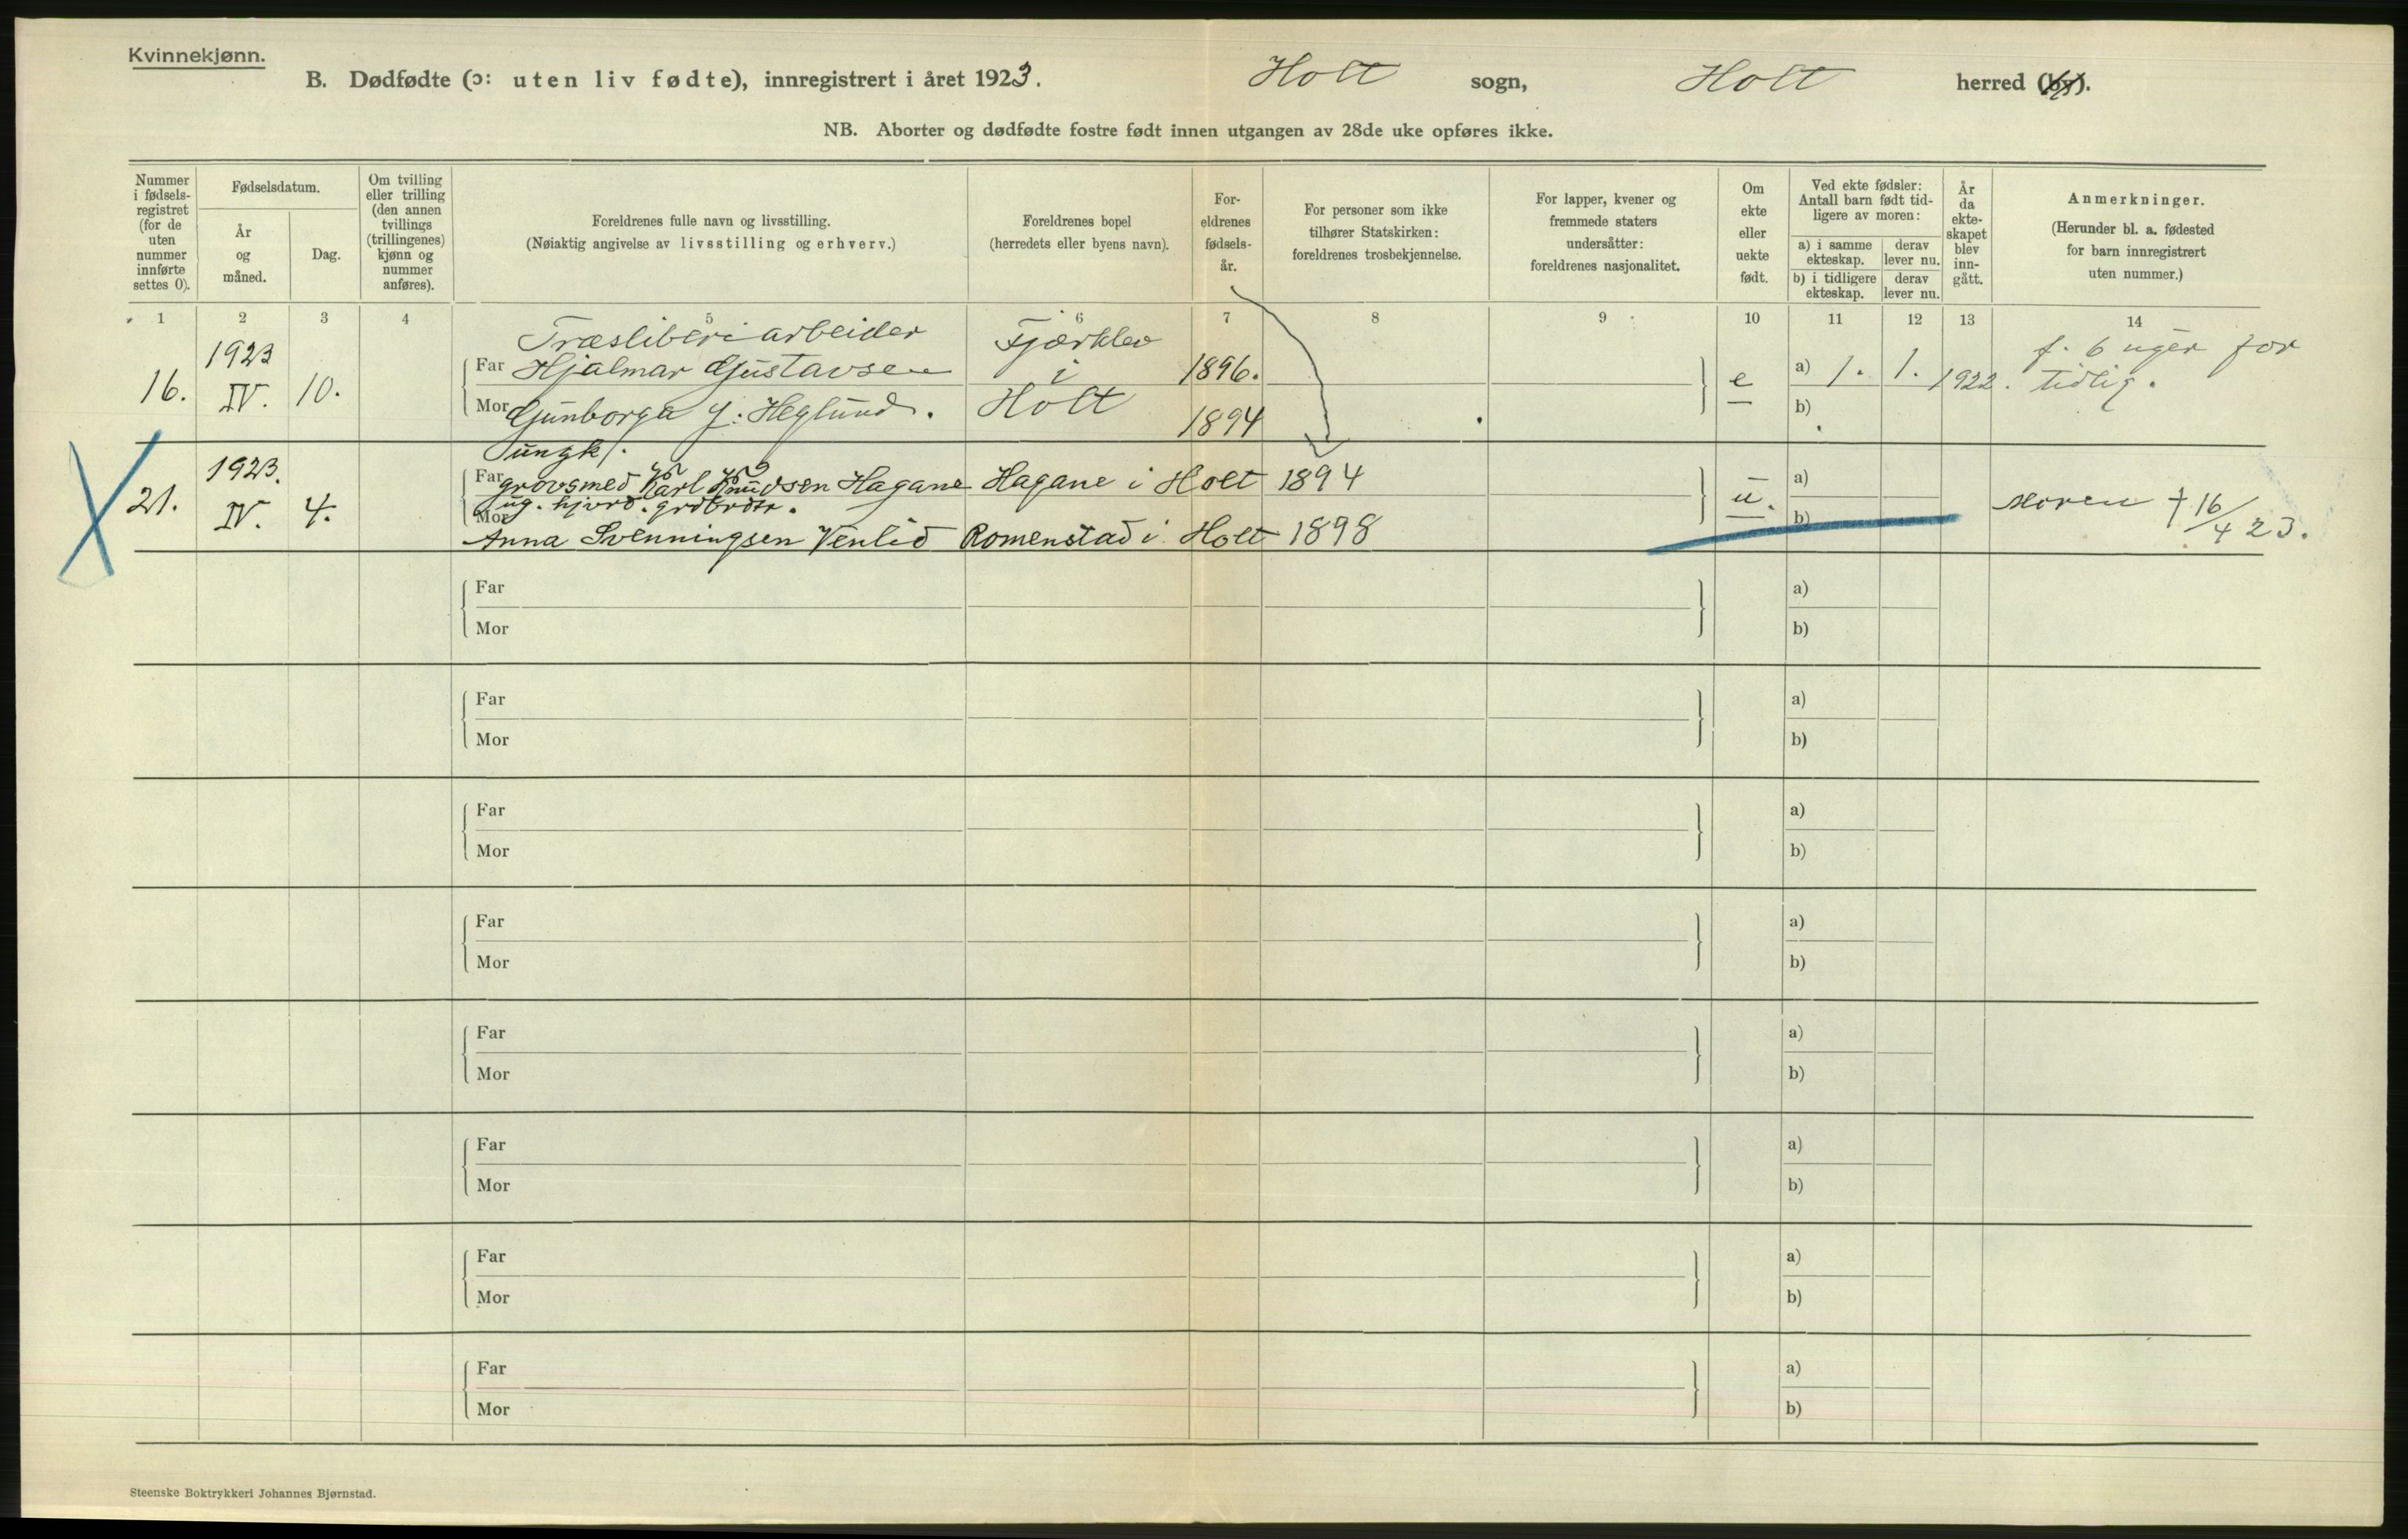 Kvinnekjønn.
B. Dødfødte (ɔ: uten liv fødte), innregistrert i året 1923. Holt sogn, Holt herred (by).
NB. Aborter og dødfødte fostre født innen utgangen av 28de uke opføres ikke.
Nummer i fødsels-registret (for de uten nummer innførte settes 0).
Fødselsdatum.
År og måned.
Dag.
Om tvilling eller trilling (den annen tvillings (trillingenes) kjønn og nummer anføres).
Foreldrenes fulle navn og livsstilling.
(Nøiaktig angivelse av livsstilling og erhverv.)
Foreldrenes bopel
(herredets eller byens navn).
For-eldrenes fødsels-år.
For personer som ikke tilhører Statskirken: foreldrenes trosbekjennelse.
For lapper, kvener og fremmede staters undersåtter: foreldrenes nasjonalitet.
Om ekte eller uekte født.
Ved ekte fødsler: Antall barn født tid-ligere av moren:
a) i samme ekteskap.
derav lever nu.
b) i tidligere ekteskap.
derav lever nu.
År da ekte-skapet blev inn-gått.
Anmerkninger.
(Herunder bl. a. fødested for barn innregistrert uten nummer.)
1 2 3 4 5 6 7 8 9 10 11 12 13 14
Træsliberiarbeider Fjærklev f. 6 uger for
1923
Far Hjalmar Gustavsen i 1896. a) 1. 1. 1922. tidlig.
16. IV. 10. e
Mor Gunborga f. Heglund. Holt 1894 b)
Ungk.
1923.
Far grovsmed Karl Knudsen Hagane Hagane i Holt 1894 a)
21. IV. 4. u. Moren † 16/4 23.
Mor ug. hjvrd. grdbrdtr. b)
Anna Svenningsen Venlid Romenstad i Holt 1898
Far a)
Mor b)
Far a)
Mor b)
Far a)
Mor b)
Far a)
Mor b)
Far a)
Mor b)
Far a)
Mor b)
Far a)
Mor b)
Far a)
Mor b)
Steenske Boktrykkeri Johannes Bjørnstad.